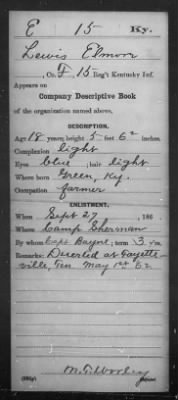 E 15 Ky.
Lewis Elmore
, Co. F, 15 Reg't Kentucky Inf.
Appears on
Company Descriptive Book
of the organization named above.
DESCRIPTION.
Age 18 years; height 5 feet 6 inches.
Complexion light
Eyes blue; hair light
Where born Green, Ky.
Occupation farmer
ENLISTMENT.
When Sept 27, 186 .
Where Camp Sherman
By whom Capt Bayne; term 3 y'rs.
Remarks: Deserted at Fayette-
ville, Ten May 1st 62